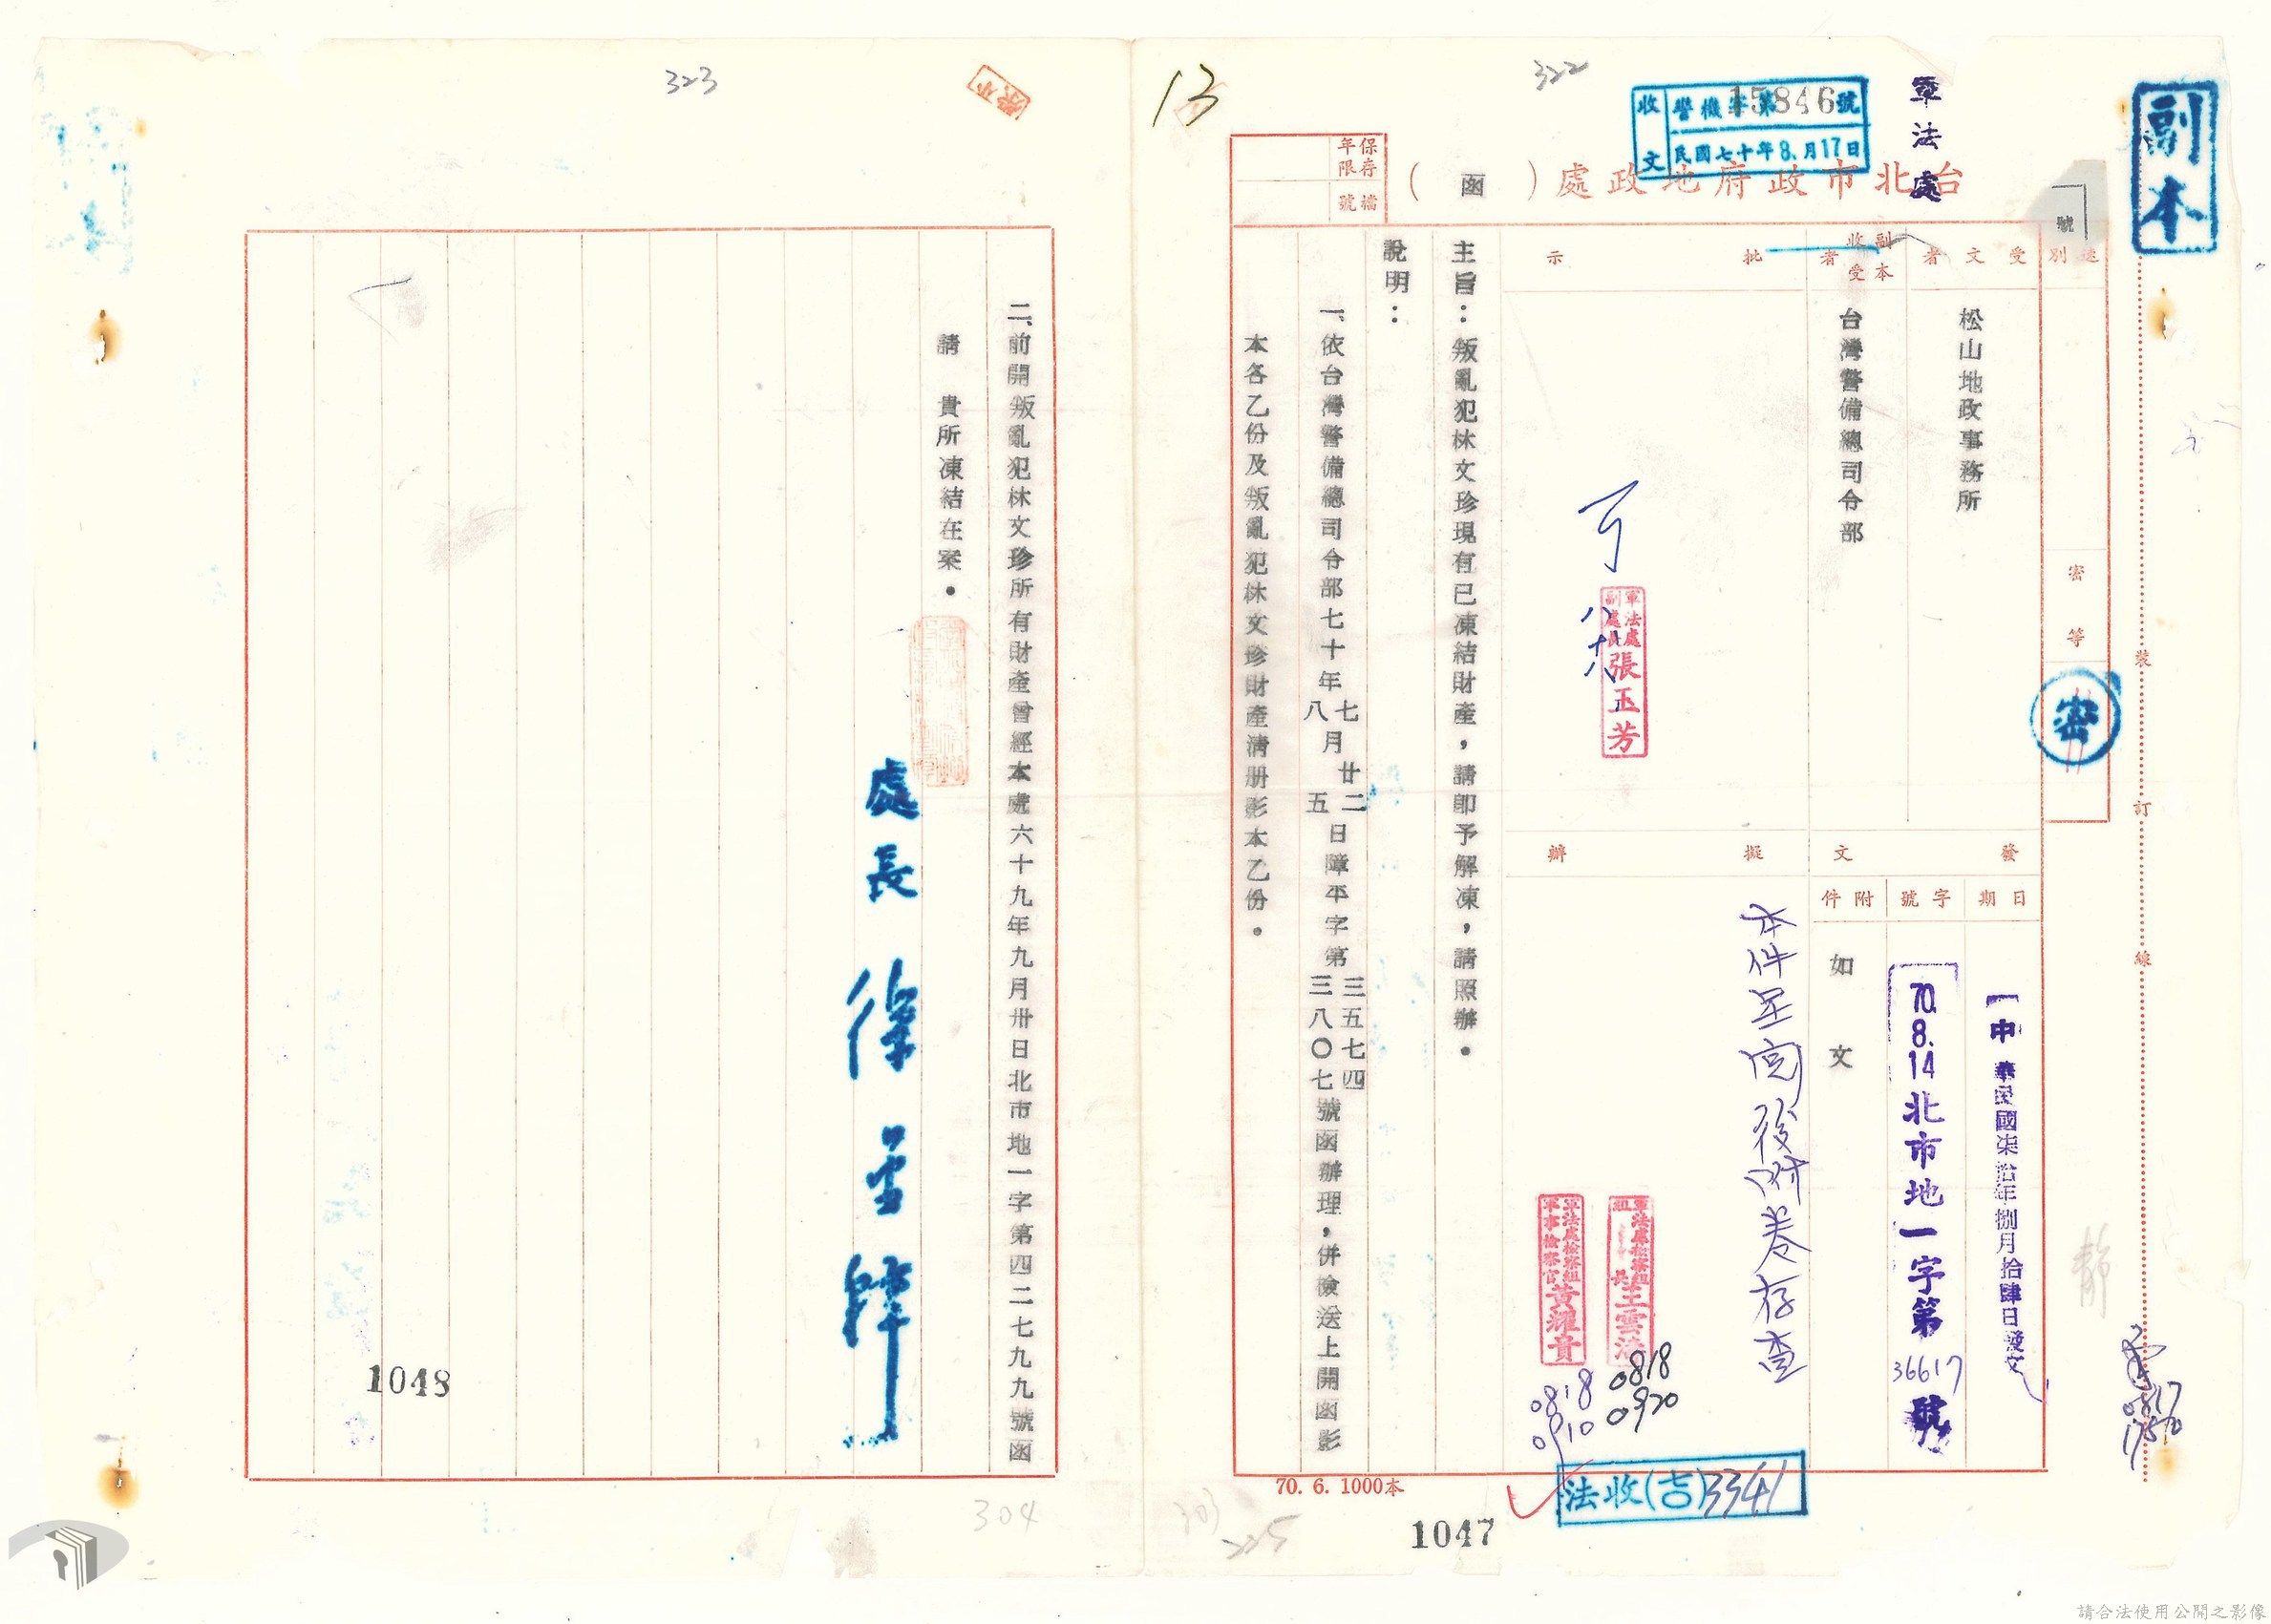 副本
軍法處
收文 警機字第15846號
民國七十年8.月17日
台北市政府地政處（函）
保存年限
檔號
號
速別
密等
密
受文者
松山地政事務所
副本收受者
台灣警備總司令部
批示
軍法處副處長張玉芳
發文
日期
中華民國柒拾年捌月拾肆日發文
字號
70.8.14北市地一字第36617號
附件
如文
擬辦
本件呈閱後附卷存查
軍法處檢察組組長王雲濤
0818
0920
軍法處檢察組軍事檢察官黃耀貴
0818
0910
主旨：叛亂犯林文珍現有已凍結財產，請即予解凍，請照辦。
說明：
一、依台灣警備總司令部七十年七八月廿二五日障平字第三五七四三八〇七號函辦理，併檢送上開函影
本各乙份及叛亂犯林文珍財產清册影本乙份。
二、前開叛亂犯林文珍所有財產曾經本處六十九年九月卅日北市地一字第四二七九九號函
請　貴所凍結在案。
處長
裝訂線
法收(吉)3341
70. 6. 1000本
1047
1048
322
323
13
304
325
0817
請合法使用公開之影像